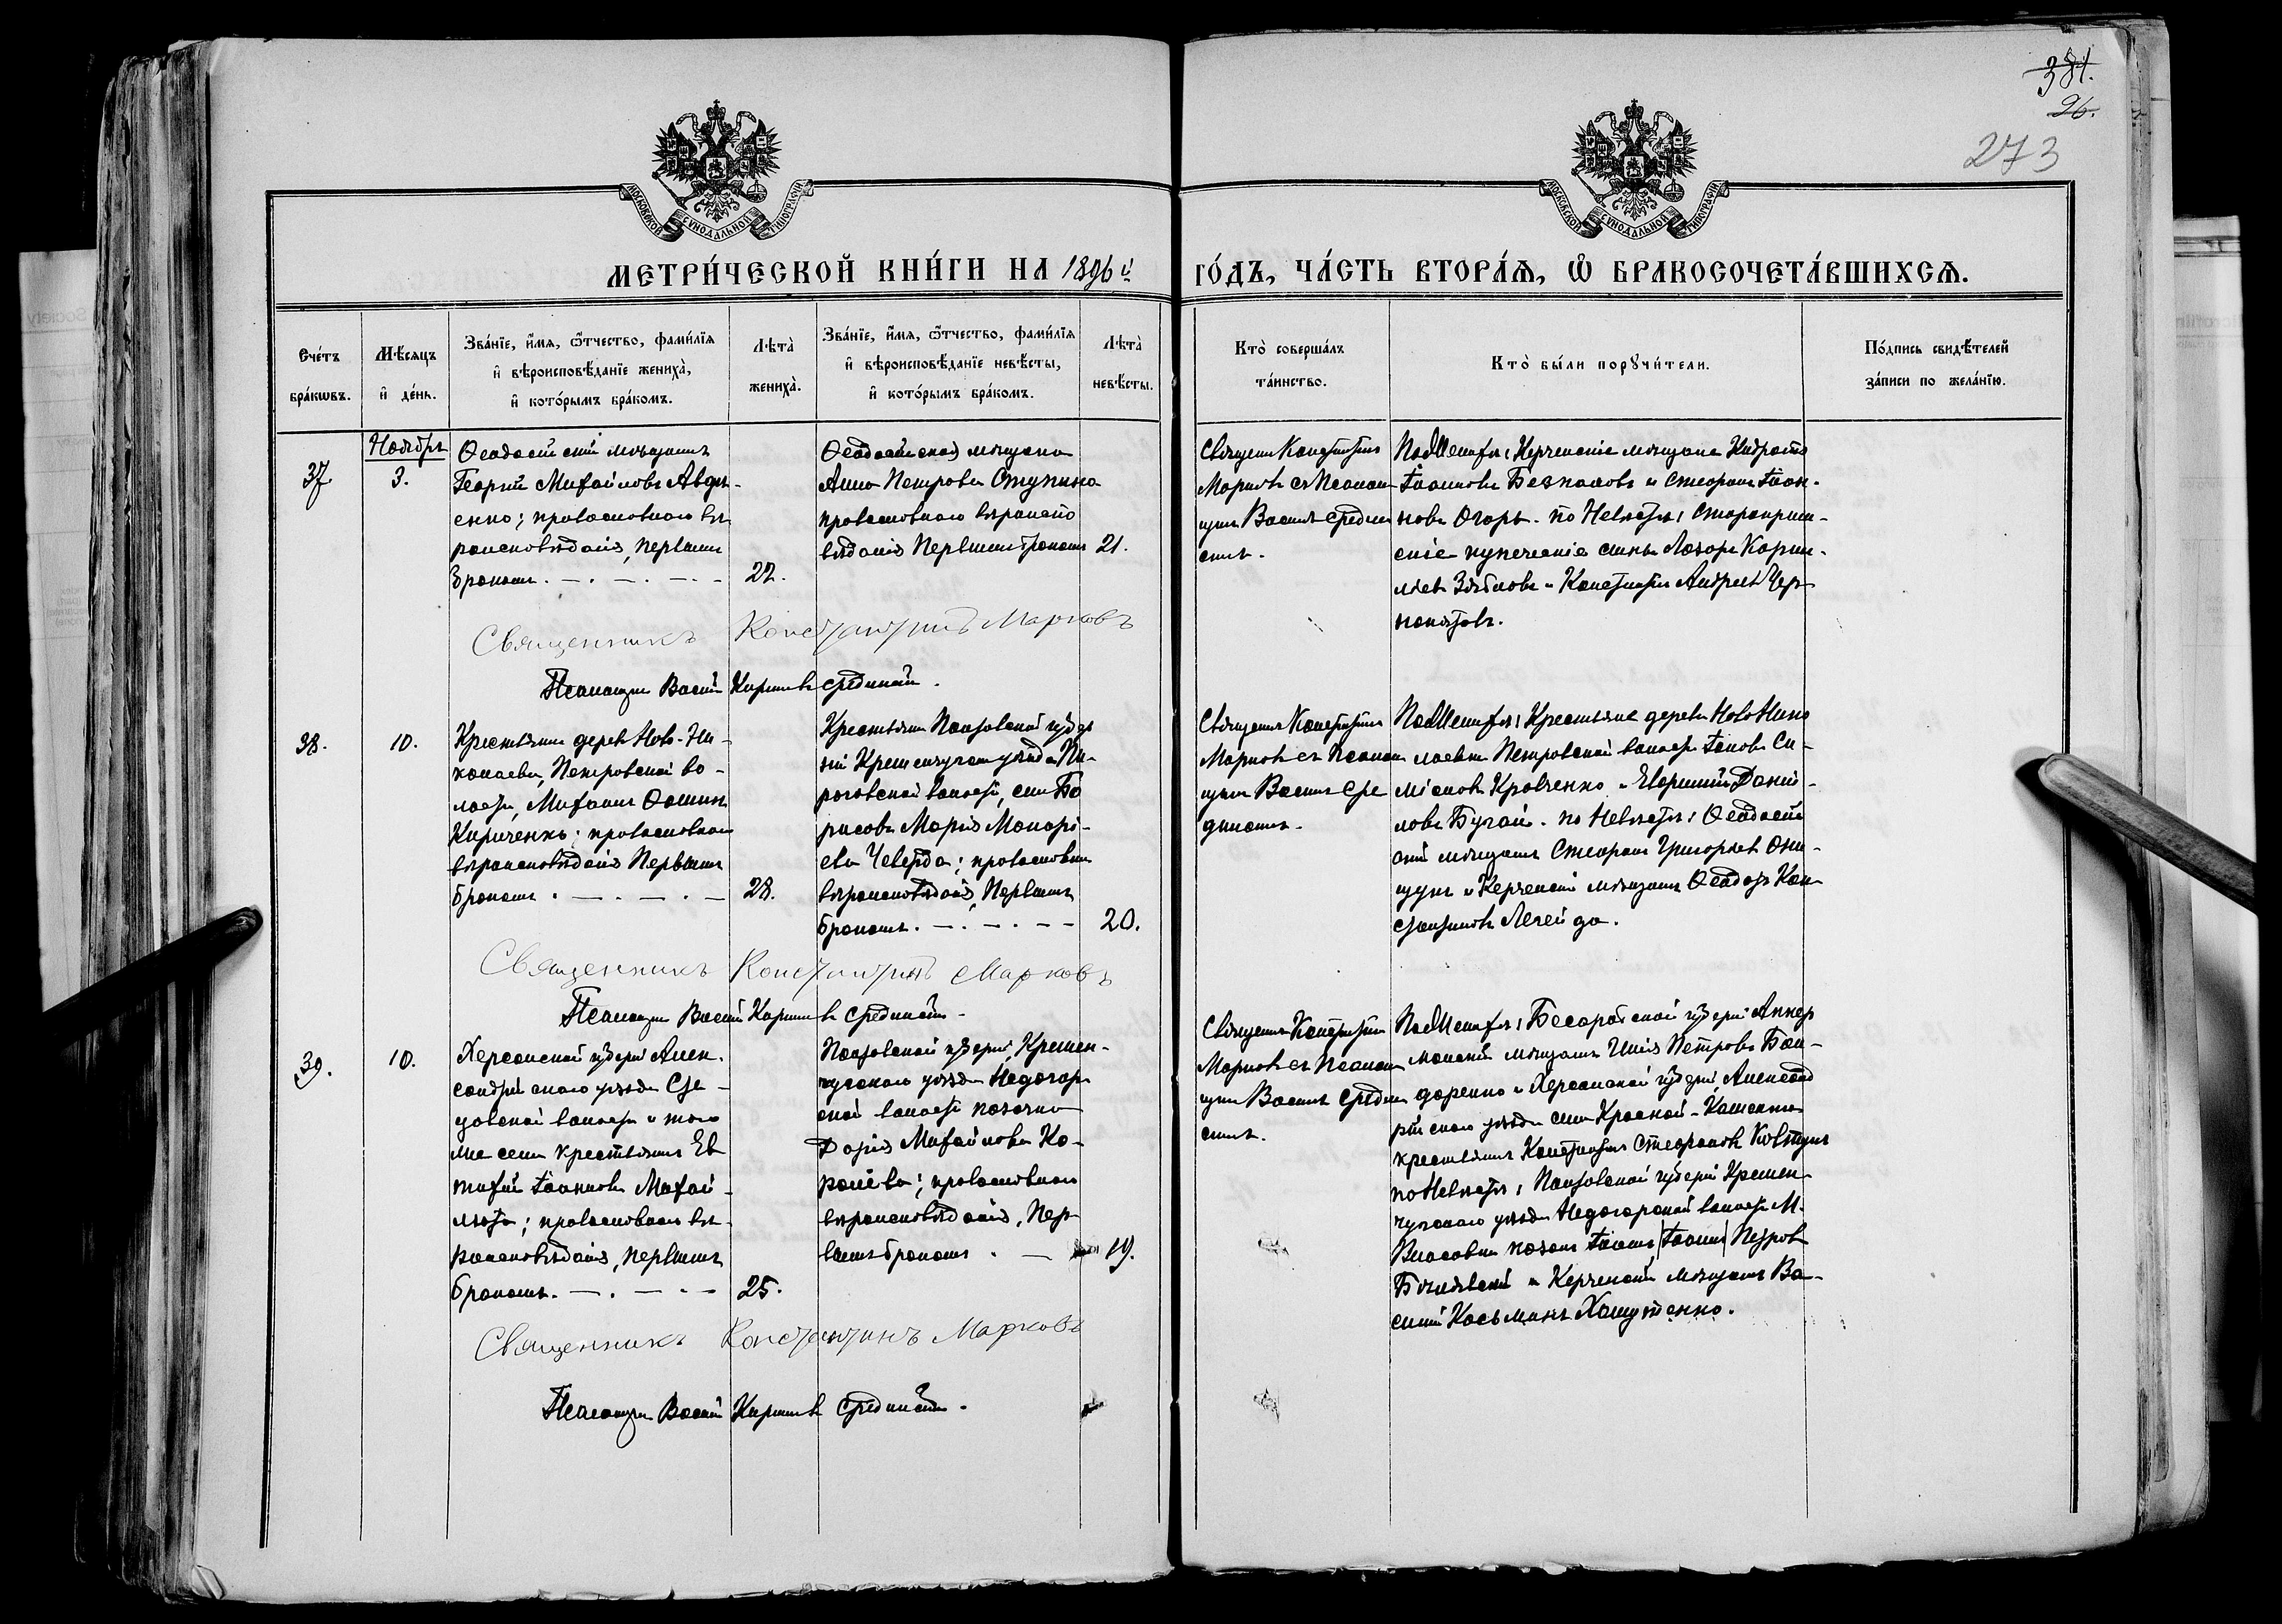 381.
26.
273
МОСКОВСКОЙ СѴНОДАЛЬНОЙ ТИПОГРАФІИ
МОСКОВСКОЙ СѴНОДАЛЬНОЙ ТИПОГРАФІИ
МЕТРИ́ЧЕСКОЙ КНИ́ГИ НА 1896 й
ГО́ДЪ, ЧА́СТЬ ВТОРА́Ѧ, Ѽ БРАКОСОЧЕТА́ВШИХСѦ.
Счéтъ
брáкѡвъ.
Мѣ́сяцъ
и҆ дéнь.
Звáнїе, и҆́мя, ѻ҆́тчество, фами́лїя
и҆ вѣроисповѣ́данїе женихà,
и҆ котóрымъ брáкомъ.
Лѣтà
женихà.
Звáнїе, и҆́мя, ѻ҆́тчество, фами́лїя
и҆ вѣроисповѣ́данїе невѣ́сты,
и҆ котóрымъ брáкомъ.
Лѣтà
невѣ́сты.
Ктò совершáлъ
тáинство.
Ктò бы́ли порꙋчи́тели.
Пóдпись свидѣ́телей
зáписи по желáнїю.
37.
Ноябрь
3.
Ѳеодосійскій мѣщанинъ
Георгій Михайловъ Авдѣ-
енко; православнаго вѣ-
роисповѣданія, первымъ
бракомъ.
22.
Ѳеодосійская мѣщанка
Анна Петрова Ступина
православнаго вѣроиспо
вѣданія первымъ бракомъ
21.
Священ. Константинъ
Марковъ съ псалом
щик. Васил. Средин
скимъ.
По женихѣ: Керченскіе мѣщане
Іоанновъ и Стефанъ Іоан-
новъ Огарь. По невѣстѣ:
скіе купеческіе сыны Лазарь
и Константинъ Андреевъ Чер
Священникъ Константинъ Марковъ
Псаломщ. Васил. Срединскій.
38.
10.
Крестьянинъ дерев. Ново-Ни-
колаевки, Петровской во-
лости, Михаилъ Ѳоминъ
Кириченко; православнаго
вѣроисповѣданія первымъ
бракомъ.
28.
Крестьянка Полтавской губер
ніи Кременчугскаго уѣзда Пи-
роговской волости, села Бо
рисовки Марія Макарі-
ева Чеверда; православнаго
вѣроисповѣданія, первымъ
бракомъ.
20.
Священн. Константинъ
Марковъ съ псалом
щик. Василъ Сре
динскимъ.
По женихѣ: Крестьяне дерев. Ново Нико
лаевки Петровской волости Іаковъ Си-
Кравченко и Дані-
ловъ Бугай. По невѣстѣ: Ѳеодосій
скій мѣщанинъ Стефанъ Григорьевъ Они-
щукъ и Керченскій мѣщанинъ Ѳеодоръ Кон-
стантиновъ Легейда.
Священникъ Константинъ Марковъ
Псаломщ. Васил. Срединскій.
39.
10.
Херсонской губерн. Алек-
сандрійскаго уѣзда
волости и того
же села крестьянинъ Ев
тихій Іоанновъ Михай-
православнаго вѣ-
роисповѣданія, первымъ
бракомъ.
25.
Полтавской губерн. Кремен-
чугскаго уѣзда Недогар
ской волости казачка
Дарія Михайлова Ко-
православнаго
вѣроисповѣданія, пер-
вымъ бракомъ.
19.
Священн. Константинъ
Марковъ съ псалом
щик. Василъ Средин
скимъ.
По женихѣ: Бесарабской губерн. Аккер
манскій мѣщанинъ Петровъ Бон-
даренко и Херсонской губерн. Александ
рійскаго уѣзда села Красной-Каменки
крестьянинъ Константинъ Стефановъ Ковтунъ
по невѣстѣ: Полтавской губерн. Кремен-
чугскаго уѣзда Недогарской волости М.
Власовки казакъ Іоаннъ /Іоаннъ/ Петровъ
и Керченскій мѣщанинъ Ва-
силій Косьминъ Хомутенко.
Священникъ Константинъ Марковъ
Псаломщ. Васил. Срединскій.